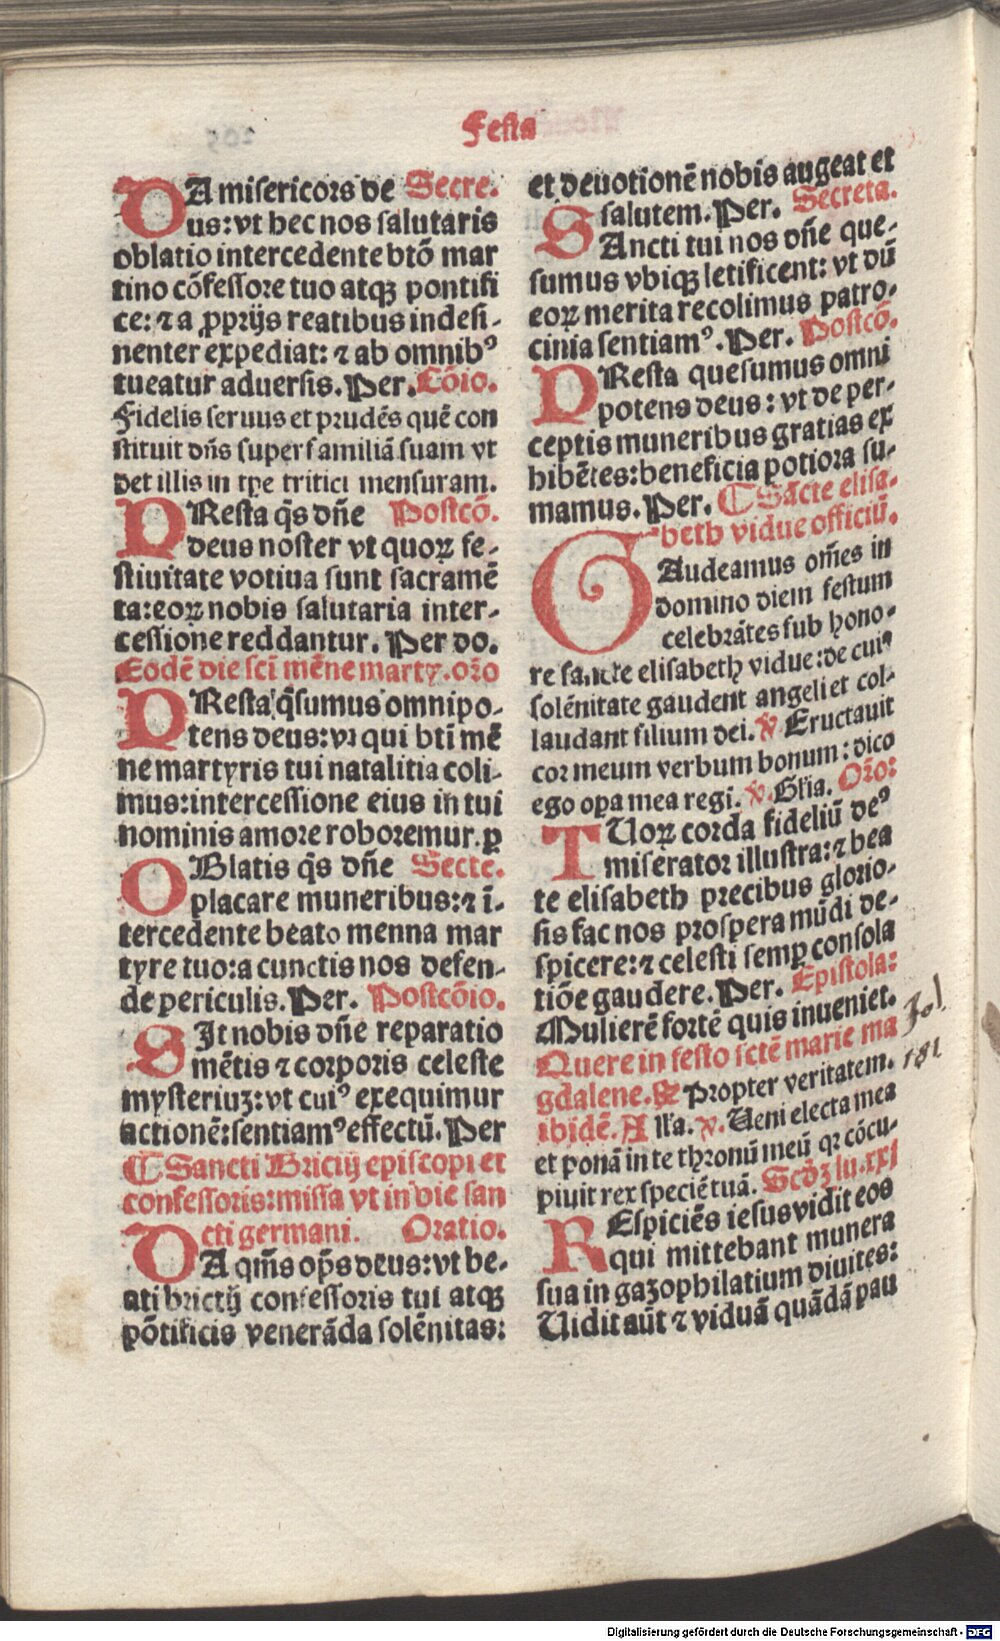 Festa
DA misericors de Secre.
us: vt hec nos salutaris
oblatio intercedente btō mar
tino cōfessore tuo atqꝫ pontifi
ce: ⁊ a ꝓprijs reatibus indesi-
nenter expediat: ⁊ ab omnibꝰ
tueatur aduersis. Per. Cōio.
Fidelis seruus et prudēs quē con
stituit dn̄s super familiā suam vt
det illis in tp̄e tritici mensuram.
PResta q̄s dn̄e Postcō.
deus noster vt quoꝝ fe-
stiuitate votiua sunt sacramē
ta: eoꝝ nobis salutaria inter-
cessione reddantur. Per do.
Eodē die sc̄i mēne marty. orō
PResta q̄sumus omnipo-
tens deus: vt qui btī mē
ne martyris tui natalitia coli-
mus: intercessione eius in tui
nominis amore roboremur. ꝑ
OBlatis q̄s dn̄e Secre.
placare muneribus: ⁊ ī-
tercedente beato menna mar
tyre tuo: a cunctis nos defen-
de periculis. Per. Postcōio.
SIt nobis dn̄e reparatio
mētis ⁊ corporis celeste
mysteriuꝫ: vt cuiꝰ exequimur
actionē: sentiamꝰ effectū. Per
¶ Sancti Bricij episcopi et
confessoris: missa vt in die san
cti germani. Oratio.
DA qm̄s op̄s deus: vt be-
ati brictij confessoris tui atqꝫ
pōtificis venerāda solēnitas:
et deuotionē nobis augeat et
salutem. Per. Secreta.
SAncti tui nos dn̄e que-
sumus vbiqꝫ letificent: vt dū
eoꝝ merita recolimus patro-
cinia sentiamꝰ. Per. Postcō.
PResta quesumus omni
potens deus: vt de per-
ceptis muneribus gratias ex
hibētes: beneficia potiora su-
mamus. Per. ¶ Sācte elisa-
beth vidue officiū.
GAudeamus om̄es in
domino diem festum
celebrātes sub hono-
re sancte elisabeth vidue: de cuiꝰ
solēnitate gaudent angeli et col-
laudant filium dei. ℣ Eructauit
cor meum verbum bonum: dico
ego opa mea regi. ℣. Gl̄ia. Orō:
TUoꝝ corda fideliū deꝰ
miserator illustra: ⁊ bea
te elisabeth precibus glorio-
sis fac nos prospera mūdi de-
spicere: ⁊ celesti semꝑ consola
tiōe gaudere. Per. Epistola:
Mulierē fortē quis inueniet.
Quere in festo sctē marie ma
gdalene. ℟ Propter veritatem.
ibidē. A ll'a. ℣. Ueni electa mea
et ponā in te thronū meū qꝛ cōcu-
piuit rex speciē tuā. Scd̄ꝫ lu. xxj
REspiciēs iesus vidit eos
qui mittebant munera
sua in gazophilatium diuites:
Uidit aūt ⁊ viduā quādā pau
fol
181
Digitalisierung gefördert durch die Deutsche Forschungsgemeinschaft - DFG